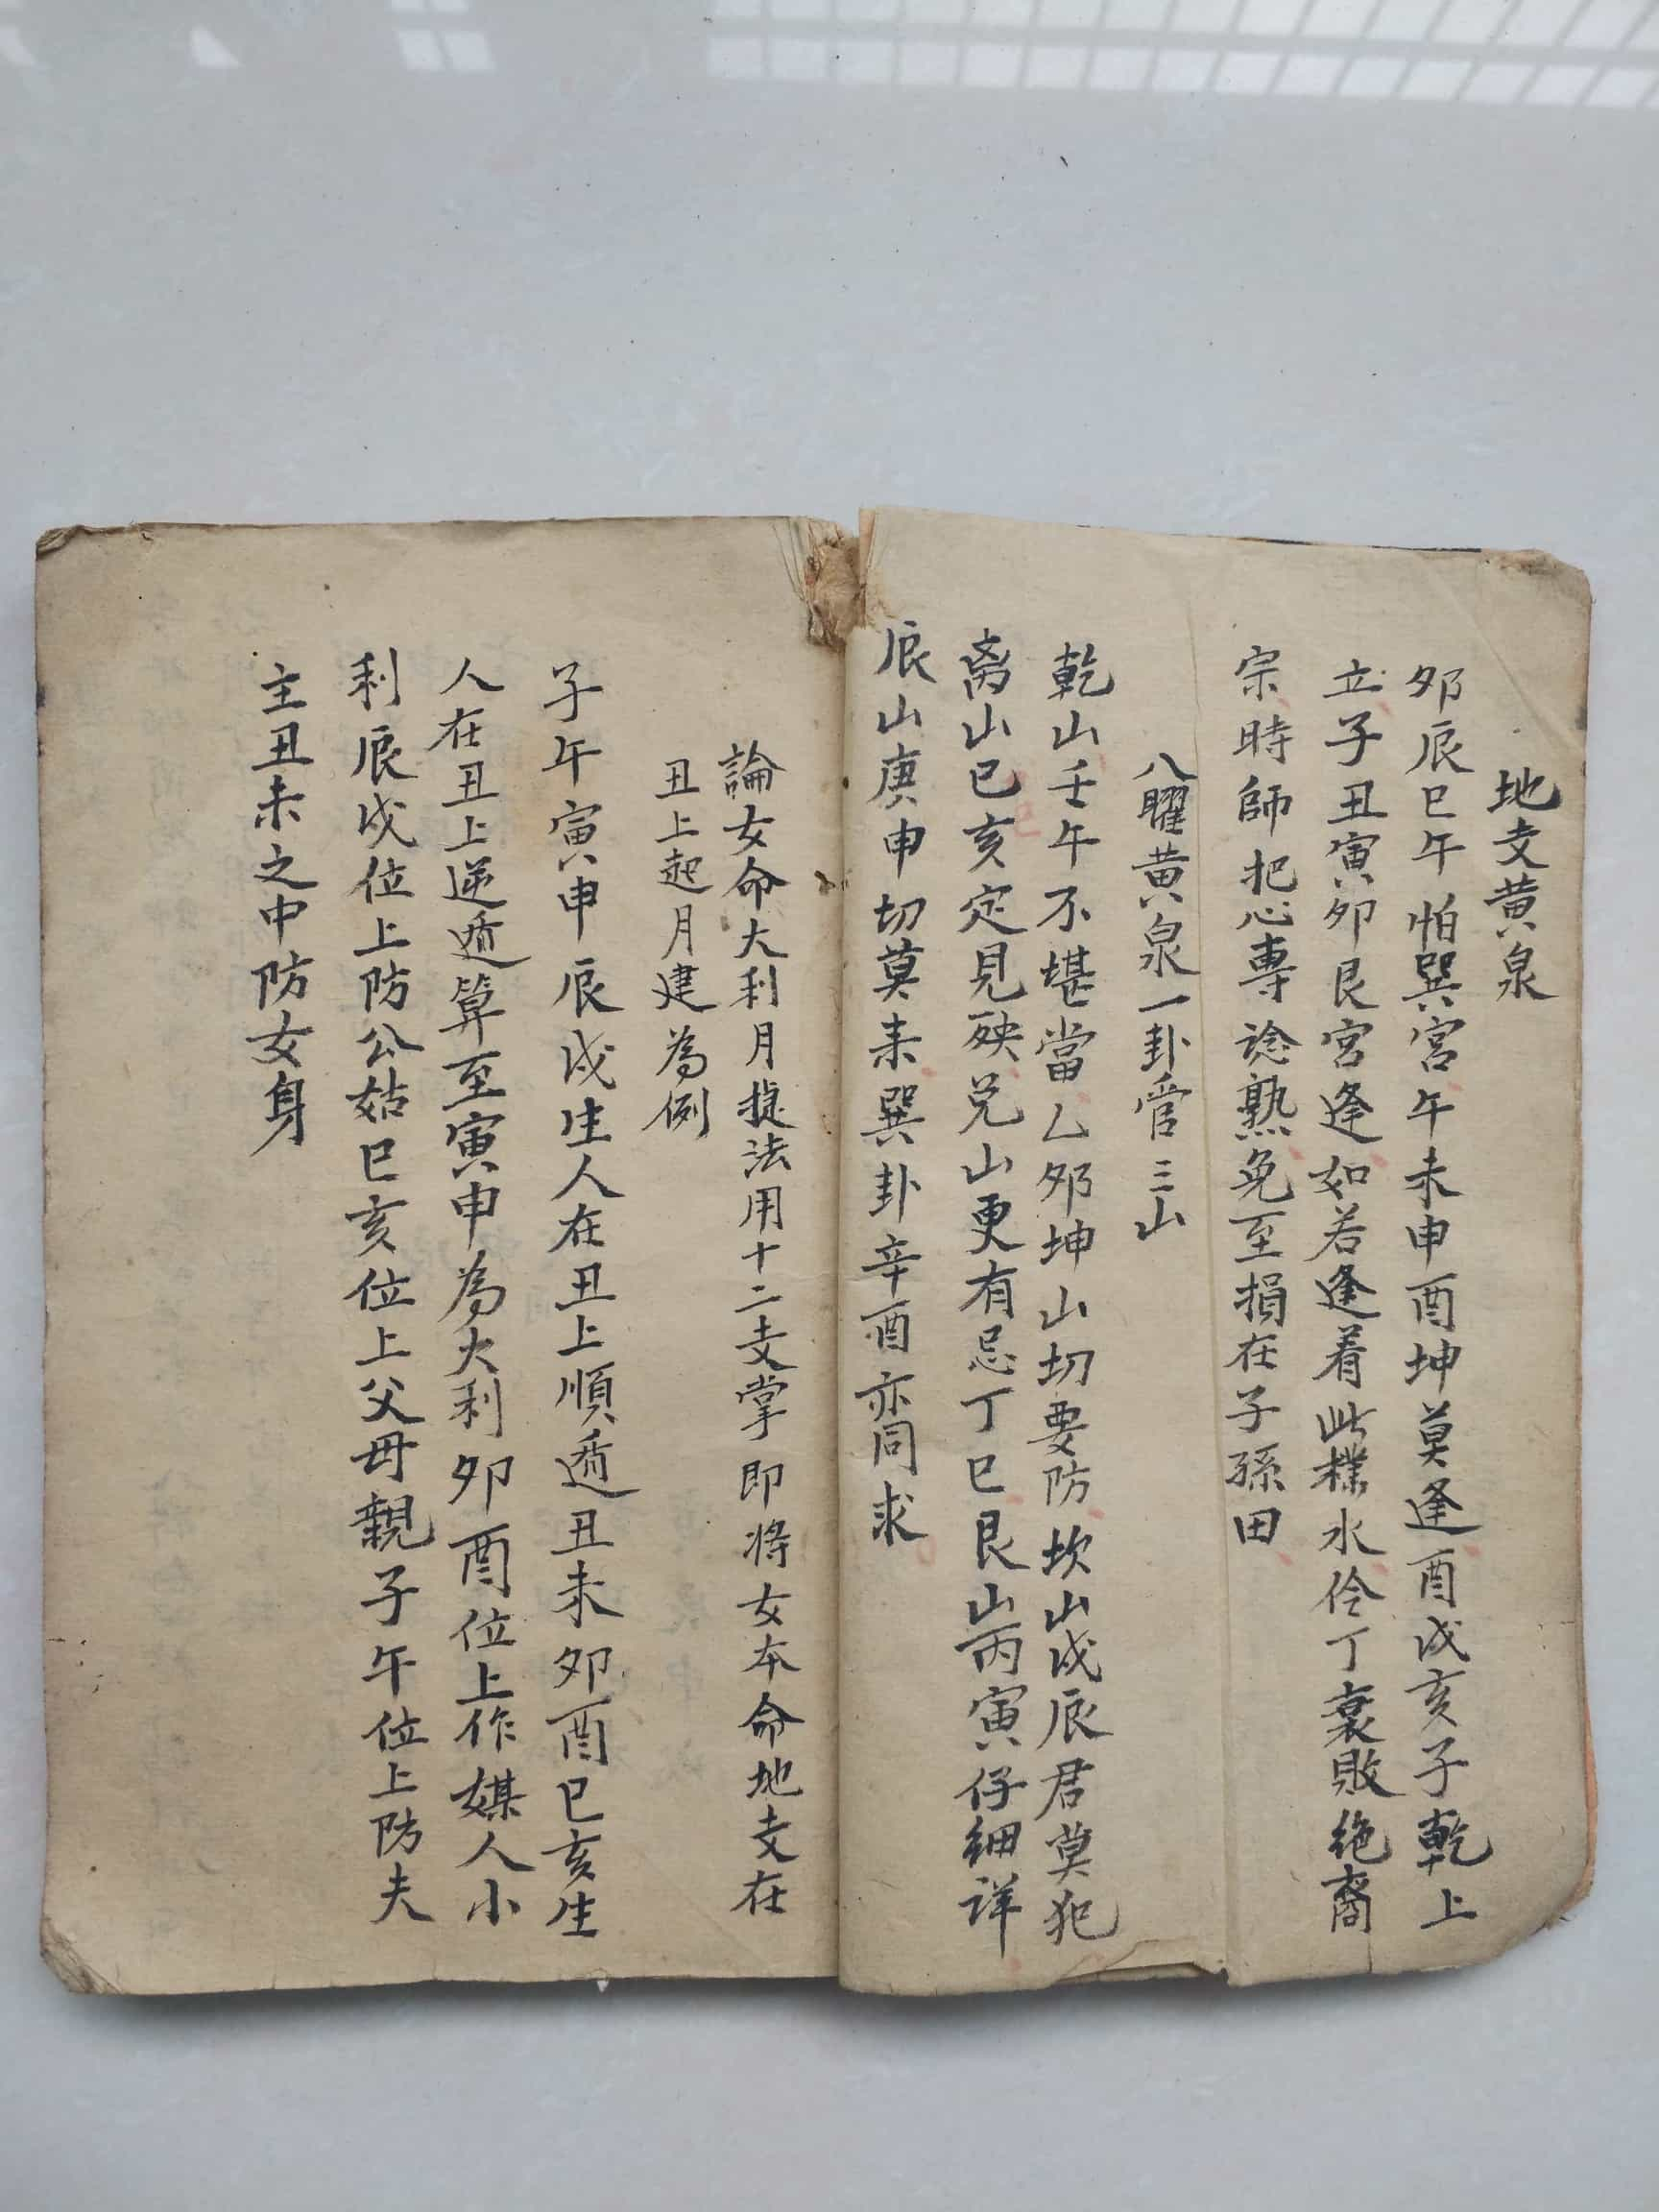 地支黄泉
夘辰巳午怕巽宮午未申酉坤莫逢酉戌亥子乾上
立子丑寅夘艮宮逢如若逢着此樣水伶丁衰敗绝裔
宗時師把心專谂熟免至損在子孫田
八曜黄泉一卦管三山
乾山壬午不堪當乙夘坤山切要防坎山戌辰君莫犯
离山巳亥定見殃兑山更有忌丁巳艮山丙寅仔细详
辰山庚申切莫来巽卦辛酉亦同求
論女命大利月捷法用十二支掌即将女本命地支在
丑上起月建為例
子午寅申辰戌生人在丑上順遁丑未夘酉巳亥生
人在丑上逆遁算至寅申為大利夘酉位上作媒人小
利辰戌位上防公姑巳亥位上父母親子午位上防夫
主丑未之中防女身